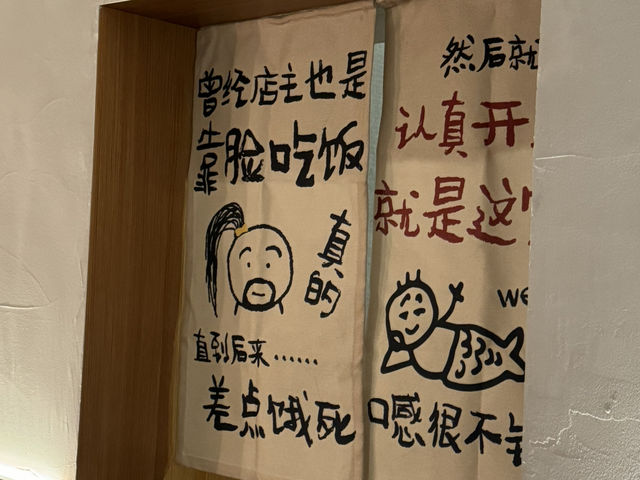 曾经店主也是
靠脸吃饭
真的
直到后来……
差点饿死
然后就
认真开
就是这
we
口感很不